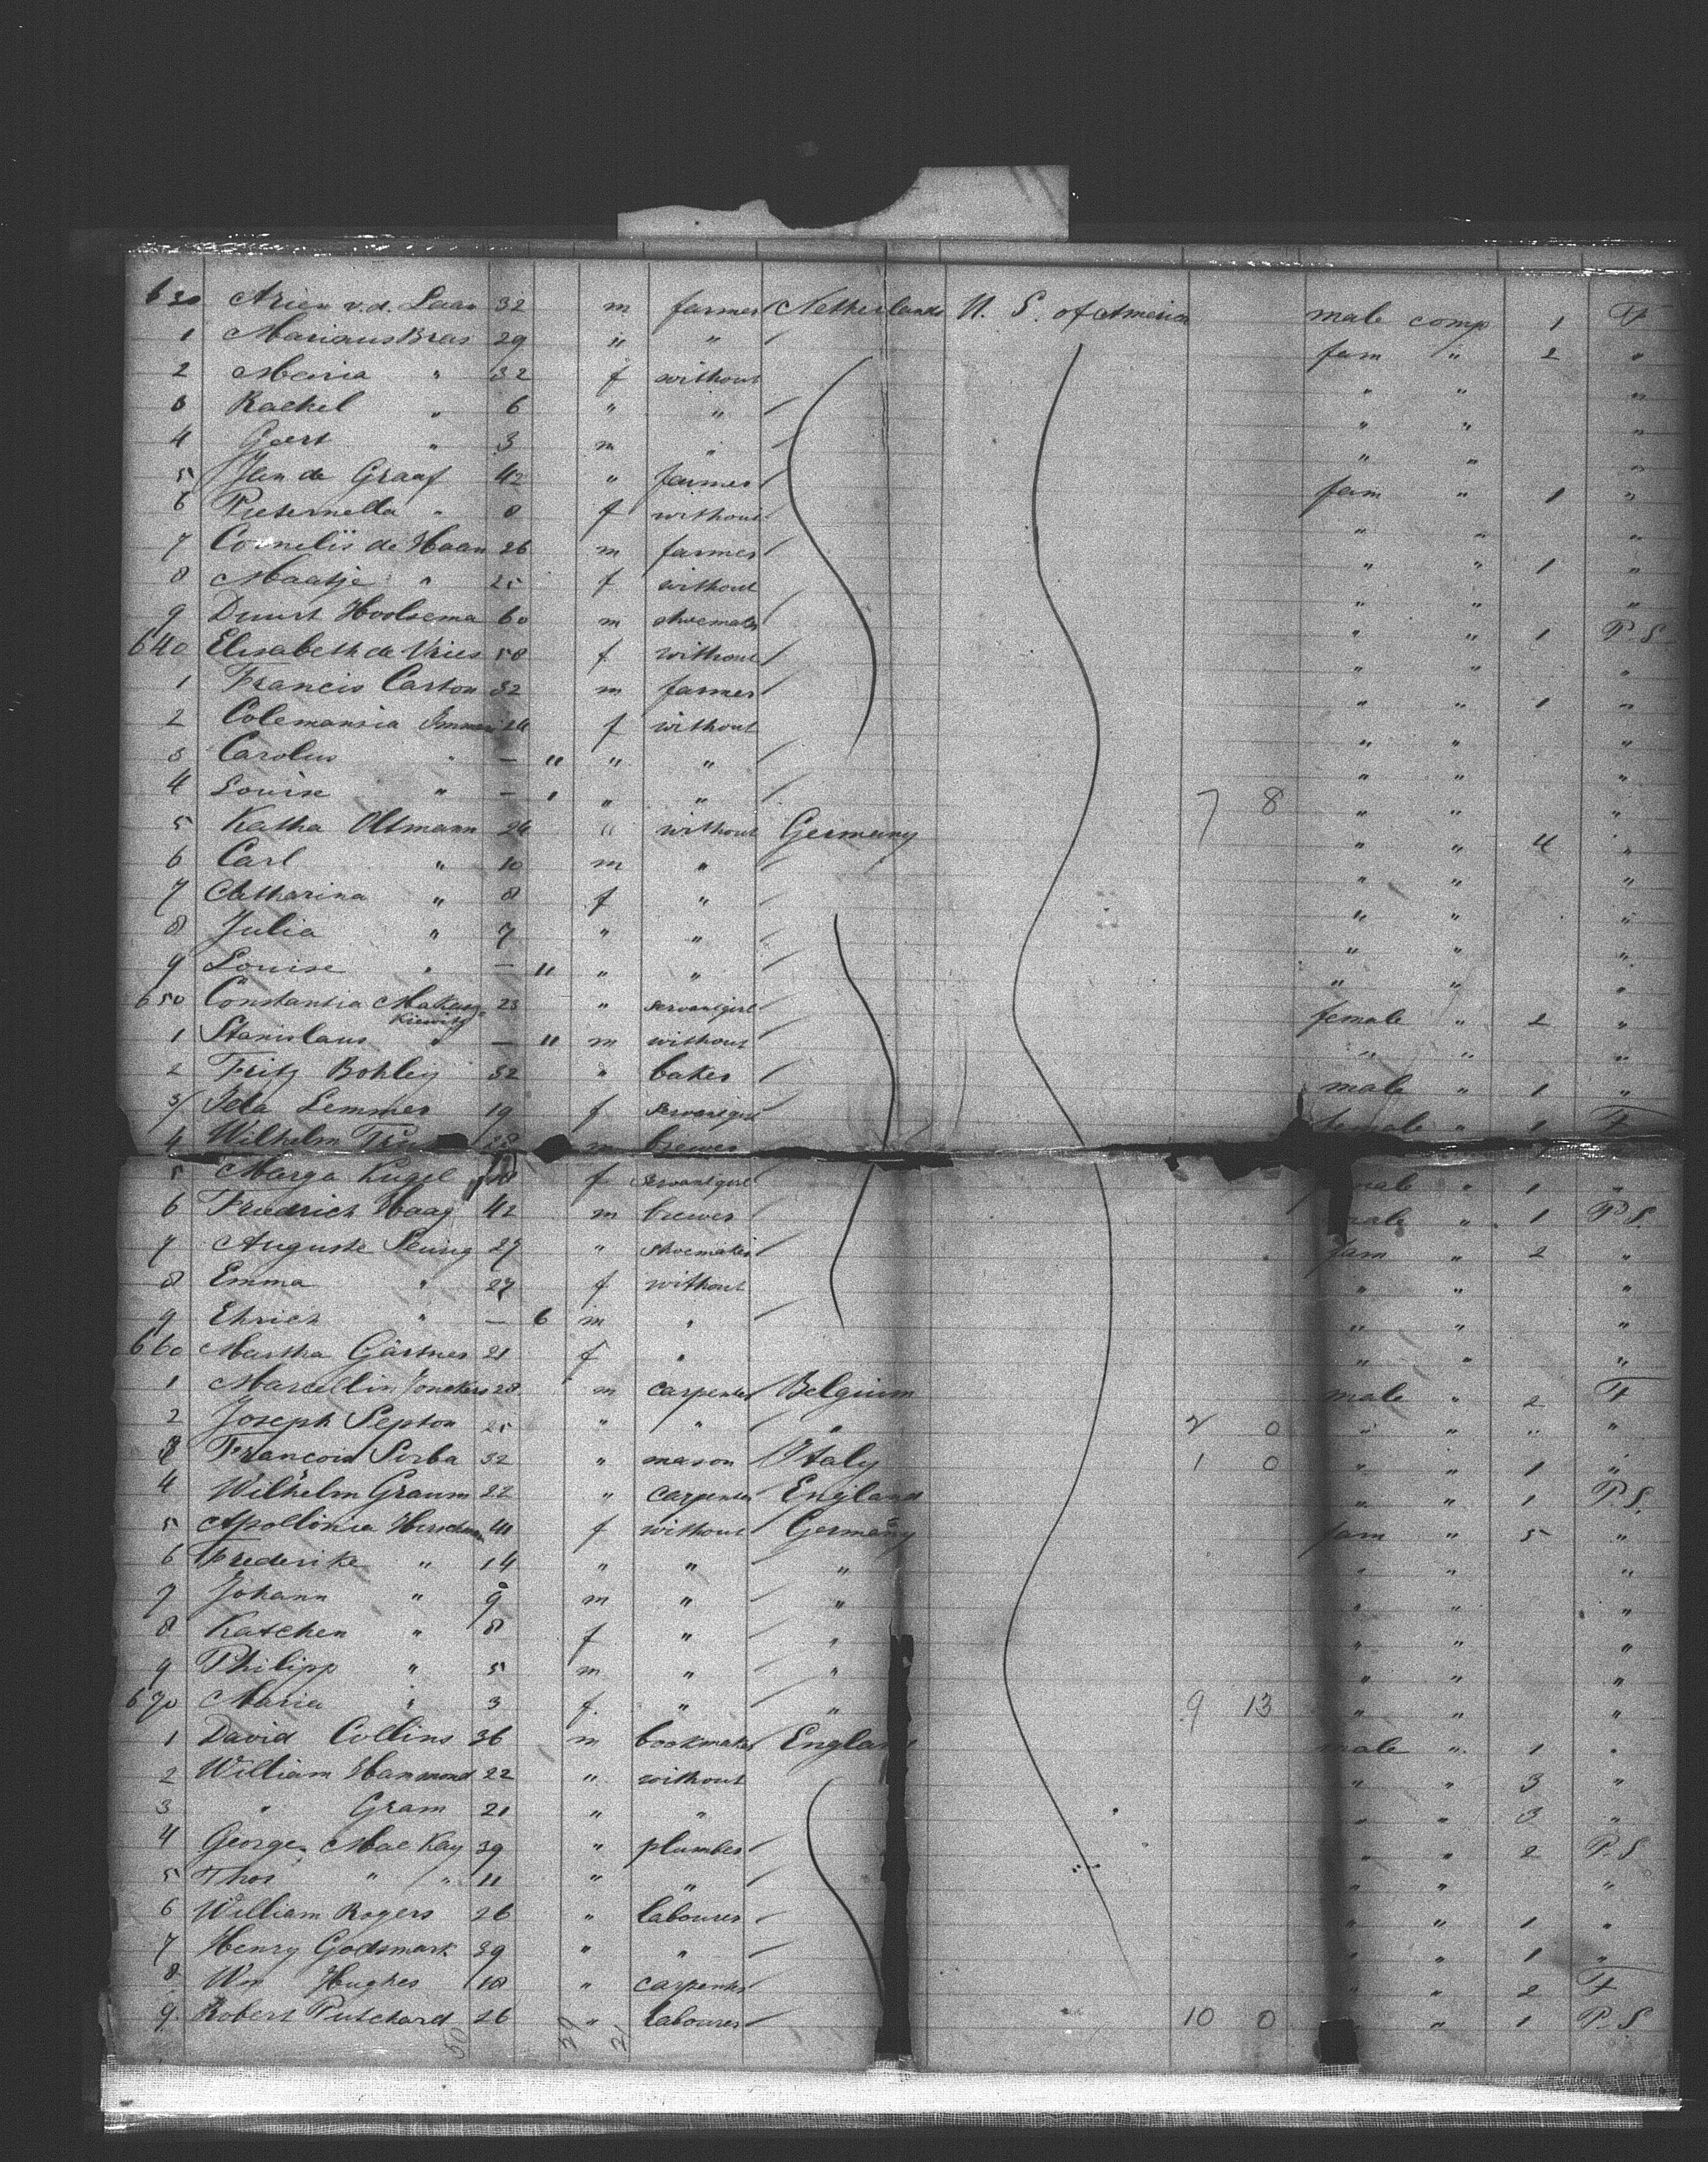 630 Arien v.d. Laan 32 m farmer Netherlands U. S. of America male comp 1 Ff
1 Marianus Bras 29 " " fam " 2 "
2 Maria " 32 f without " " "
3 Rachel " 6 " " " " "
4 Geert " 3 m " " " "
5 Jan de Graaf 42 " farmer fam " 1 "
6 Pieternella " 8 f without " " "
7 Cornelis de Haan 26 m farmer " " 1 "
8 Maatje " 25 f without " " "
9 Duurt Hoolsema 60 m shoemaker " " 1 P. S.
640 Elisabeth de Vries 58 f without " " "
1 Francis Carton 32 m farmer " " 1 "
2 Colemansia 24 f without " " "
3 Carolus " — 11 " " " " "
4 Louise " — " " 7 8 " " "
5 Katha Oltmann 24 " without Germany " " 4 "
6 Carl " 10 m " " " "
7 Catharina " 8 f " " " "
8 Julia " 7 " " " " "
9 Louise " — 11 " " " " "
650 Constantia Makowskiewitz 23 " servantgirl female " 2 "
1 Stanislaus " — 11 m without " " "
2 Fritz Bohley 32 " baker male " 1 "
3 Ida Lemmer 19 f servantgirl female " 1 Ff
4 Wilhelm m brewer
5 Marga Kugel 18 f servantgirl male " 1 "
6 Friedrich Haag 42 m brewer male " 1 P. S.
7 Auguste 27 " shoemaker fam " 2 "
8 Emma " 27 f without " " "
9 Ehrich " — 6 m " " " "
660 Martha Gärtner 21 f " " " "
1 Marcellin Jonckers 28 m carpenter Belgium male " 2 Ff
2 Joseph Lepton 25 " " " 2 0 " " " "
3 Francois Sirba 32 " mason Italy 1 0 " " 1 "
4 Wilhelm Graum 22 " carpenter England " " 1 P. S.
5 Apollonia 41 f without Germany fam " 5 "
6 Frederike " 14 " " " " " "
7 Johann " 9 m " " " " "
8 Katchen " 8 f " " " " "
9 Philipp " 5 m " " " " "
670 Maria " 3 f. " " 9 13 " " "
1 David Collins 36 m bookmaker England male " 1 "
2 William Hammond 22 " without " " 3 "
3 " Gram 21 " " " " 3 "
4 George Mac Kay 39 " plumber " " 2 P. S.
5 Thos " " 11 " " " " "
6 William Rogers 26 " labourer " " 1 "
7 Henry Godsmark 39 " " " " 1 "
8 Wm Hughes 18 " carpenter " " 2 Ff
9. Robert Putchard 26 " labourer 10 0 " " 1 P. S.
50 29 21